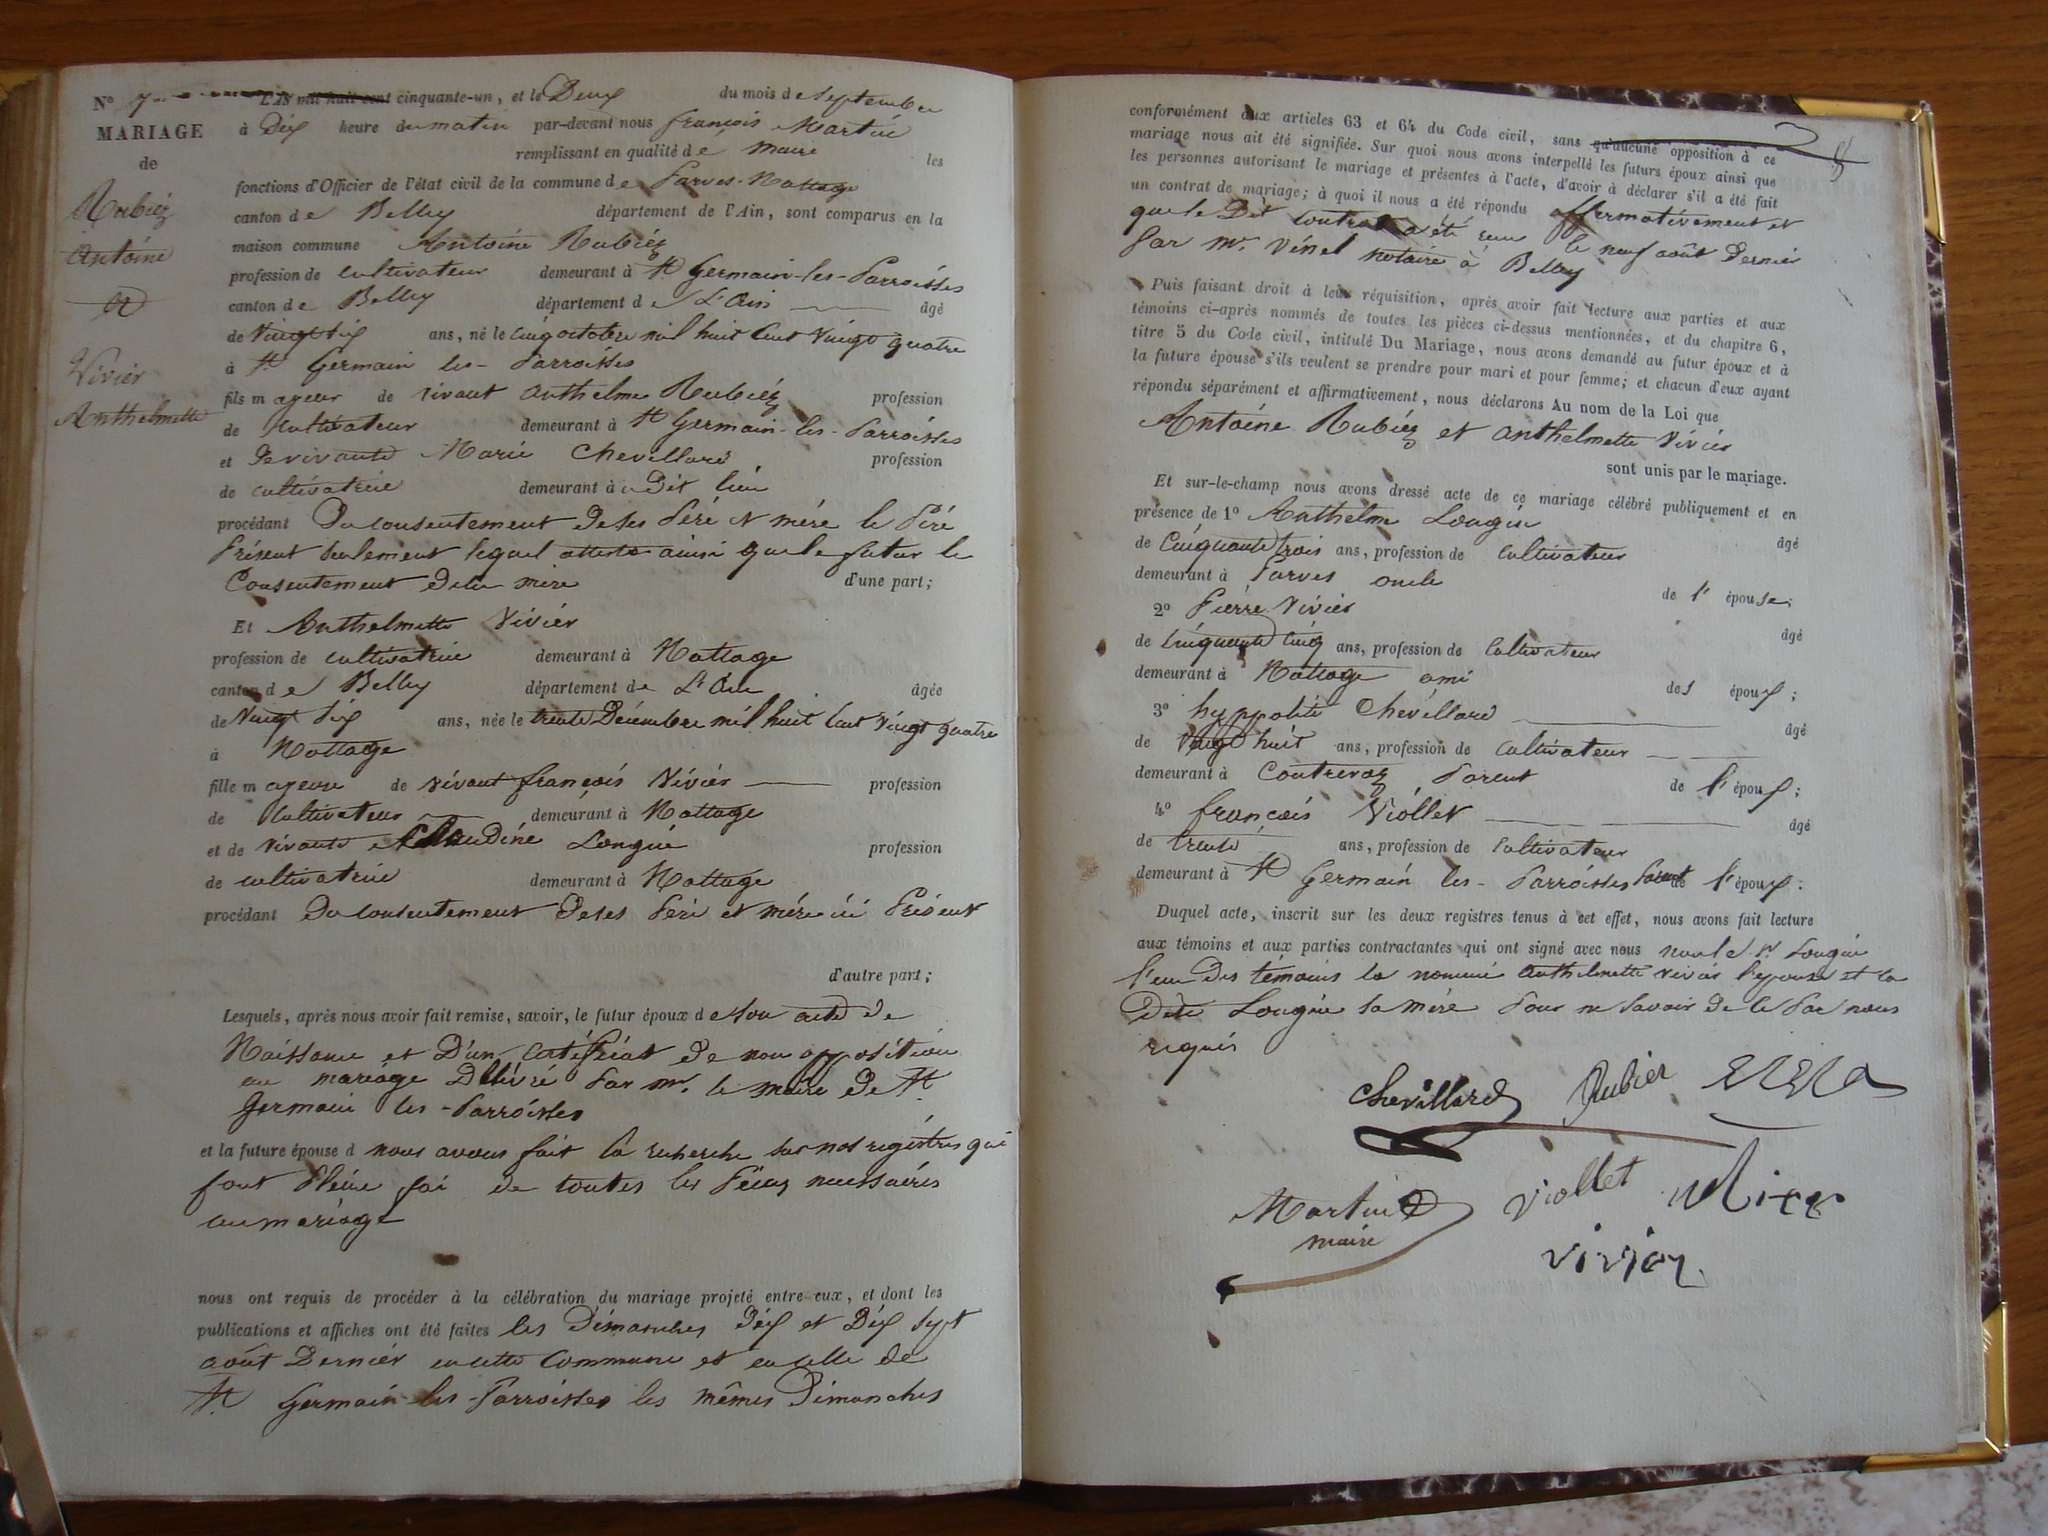 N° 7
MARIAGE
de
Rubiéz
Antoine
et
Vivier
Anthelmette
L'AN mil huit cent cinquante-un, et le Deux du mois de septembre
à Dix heure du matin par-devant nous françois Martin
remplissant en qualité de maire les
fonctions d'Officier de l'état civil de la commune de Parves-Nattage
canton de Belley département de l'Ain, sont comparus en la
maison commune Antoine Rubiéz
profession de cultivateur demeurant à St Germain-les-Parroisses
canton de Belley département de L'Ain âgé
de vingt six ans, né le cinq octobre mil huit cent vingt quatre
à St Germain les-Parroisses
fils majeur de vivant anthelme Rubiéz profession
de cultivateur demeurant à St Germain-les-Parroisses
et de vivante Marie Chevillard profession
de cultivatrice demeurant à u Dit lieu
procédant Du consentement de ses Péré et mére le Péré
Présent seulement lequel atteste ainsi que le futur le
Consentement de la mére d'une part;
Et Anthelmette Viviér
profession de cultivatrice demeurant à Nattage
canton de Belley département de L'Ain âgée
de vingt six ans, née le trente Décembre mil huit cent vingt quatre
à Nattage
fille majeure de vivant françois Viviér profession
de cultivateur demeurant à Nattage
et de vivante Claudine Longin profession
de cultivatrice demeurant à Nattage
procédant Du consentement de ses Péré et mére ici Présent
d'autre part;
Lesquels, après nous avoir fait remise, savoir, le futur époux de son acte de
Naissance et D'un Certificat de non opposition
au mariage Délivré Par mr. le maire de St.
Germain les-Parroisses
et la future épouse d nous avons fait la recherche sur nos registres qui
font Pleine foi de toutes les Piéces necessaires
au mariage
nous ont requis de procéder à la célébration du mariage projeté entre eux, et dont les
publications et affiches ont été faites les Dimanches Dix et Dix sept
août Derniér en cette Commune et en celle de
St. Germain-les-Parroisses les mêmes Dimanches
8
conformément aux articles 63 et 64 du Code civil, sans qu'aucune opposition à ce
mariage nous ait été signifiée. Sur quoi nous avons interpellé les futurs époux ainsi que
les personnes autorisant le mariage et présentes à l'acte, d'avoir à déclarer s'il a été fait
un contrat de mariage; à quoi il nous a été répondu affermativement et
que le Dit contrat a été reçu le neuf août Dernier
Par mr. Vinet notaire à Belley
Puis faisant droit à leur réquisition, après avoir fait lecture aux parties et aux
témoins ci-après nommés de toutes les pièces ci-dessus mentionnées, et du chapitre 6,
titre 5 du Code civil, intitulé Du Mariage, nous avons demandé au futur époux et à
la future épouse s'ils veulent se prendre pour mari et pour femme; et chacun d'eux ayant
répondu séparément et affirmativement, nous déclarons Au nom de la Loi que
Antoine Rubiéz et anthelmette viviér
sont unis par le mariage.
Et sur-le-champ nous avons dressé acte de ce mariage célébré publiquement et en
présence de 1° Anthelme Longin
âgé
de Cinquante trois ans, profession de cultivateur
demeurant à Parves oncle de l' épouse;
2° Piérre Viviér
âgé
de cinquante cinq ans, profession de cultivateur
demeurant à Nattage ami des époux;
3° hyppolite Chévillard
âgé
de vingt huit ans, profession de cultivateur
demeurant à Contrevoz Parent de l'époux;
4° françois Viollet
âgé
de trente ans, profession de cultivateur
demeurant à St Germain les-Parroisses Parent de l'époux:
Duquel acte, inscrit sur les deux registres tenus à cet effet, nous avons fait lecture
aux témoins et aux parties contractantes qui ont signé avec nous non le Sr. Longin
l'un Des témoins la nommé anthelmette viviér l'epouse et la
Dite Longin sa mére Pour ne savoir de ce Par nous
requis
chevillard Rubier
Martin viollet
maire vivier